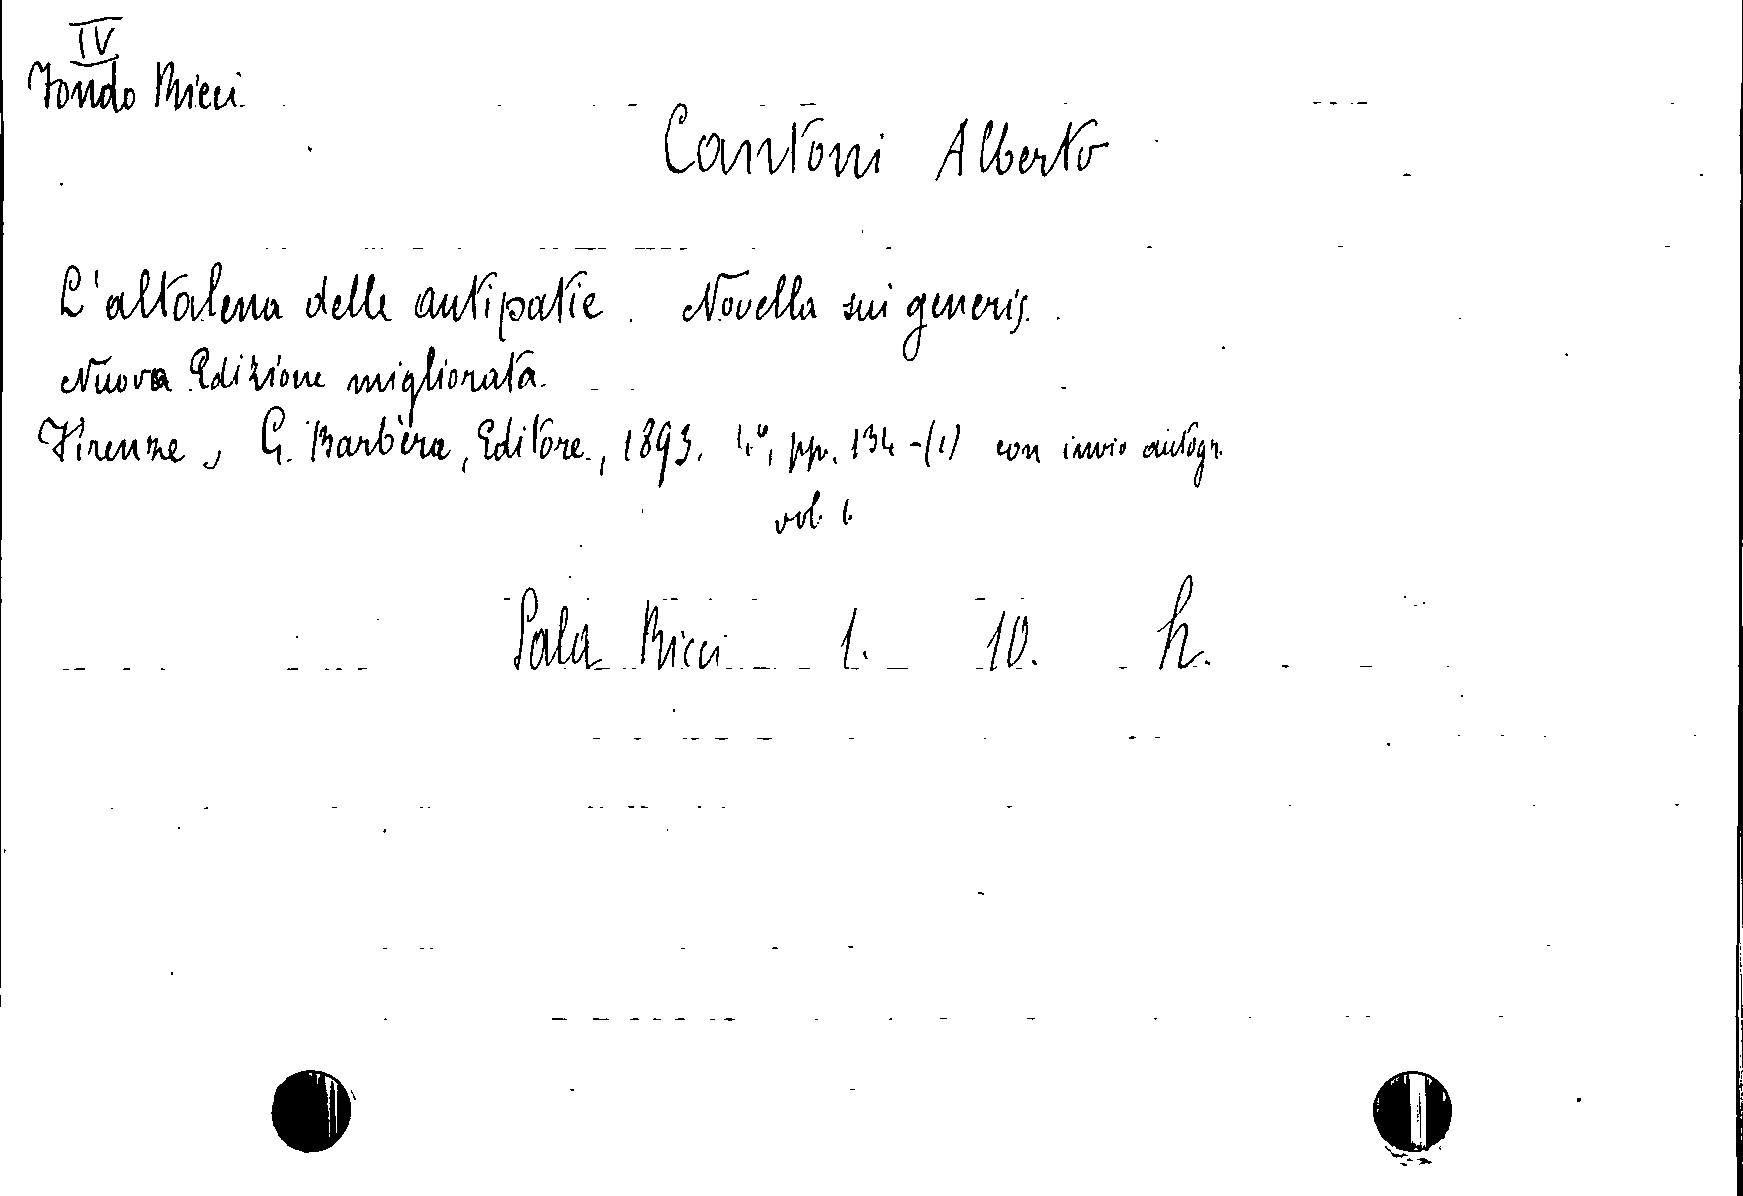 IV
Fondo Ricci
Cantoni Alberto
L'altalena delle antipatie. Novella sui generis.
Nuova Edizione migliorata.
Firenze, G. Barbèra, Editore, 1893. 4º, pp. 134-(1) con invio autogr.
vol. 1.
Sala Ricci 1. 10. h.